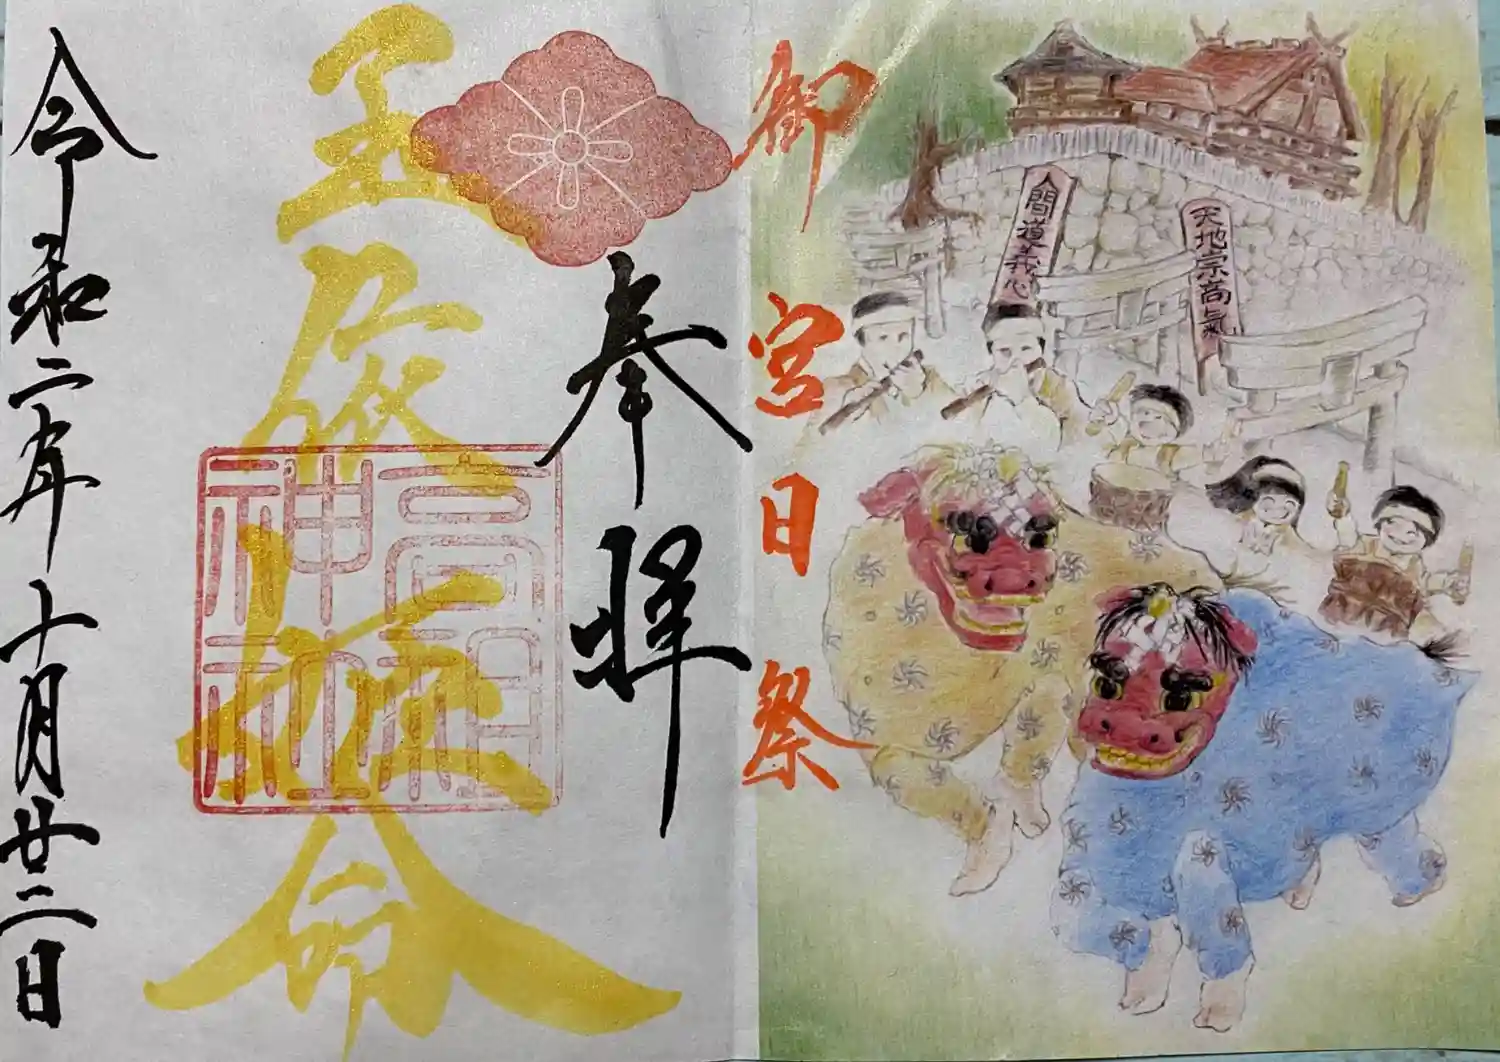 天地宗高氣
人間道義心
御宮日祭
奉拝
玉依姫命
高祖
神社
令和二年十月廿二日